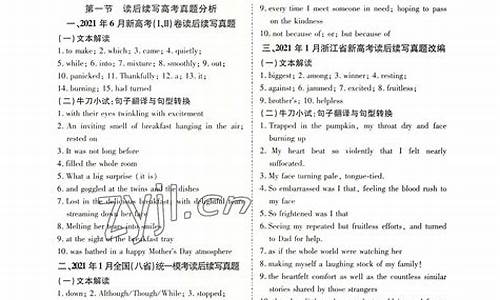 第一节 读后续写高考真题分析
一、2021 年 6 月新高考(I、II)卷读后续写真题
(一)文本解读
1. to make; 2. which; 3. came; 4. quietly;
5. while; 6. into; 7. mixture; 8. smoothly; 9. out;
10. panicked; 11. Thankfully; 12. a; 13. it;
14. burning; 15. had turned
(二)牛刀小试:句子翻译与句型转换
1. with their eyes twinkling with excitement
2. An inviting smell of breakfast hanging in the air; rested on
3. It was not long before
4. filled the whole room
5. What a big surprise (it is)
6. and goggled at the twins and the dishes
7. Lost in the delicious breakfast, with delightful tears streaming down her face
8. Melting her tears into smiles
9. at the sight of the breakfast tray
10. was bathed in a happy Mother's Day atmosphere
二、2021 年 1 月全国(八省)统一模考读后续写真题
(一)文本解读
1. down; 2. Although/Though/While; 3. stopped;
9. every time I meet someone in need; hoping to pass on the kindness
10. not because of; or; but because of
三、2021 年 1 月浙江省新高考读后续写真题改编
(一)文本解读
1. biggest; 2. among; 3. winner; 4. resting;
5. against; 6. jammed; 7. excited; 8. fruitless;
9. brother's; 10. helpless
(二)牛刀小试:句子翻译与句型转换
1. Trapped in the pumpkin, my throat dry and face burning up
2. My heart beat so violently that I felt nearly suffocated.
3. My face turning pale, tongue-tied.
4. So embarrassed was I that, feeling the blood rush to my face
5. So frightened was I that
6. Seeing my repeated but fruitless efforts, and turned to Dad for help.
7. as if the whole world were watching her
8. making myself a laughing stock of my family!
9. the heartfelt comfort as well as the countless similar stories shared by those strangers